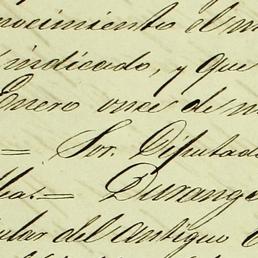 ocimiento el m
indicado, y que
Enero once de m
= Sor. Diputado
lla. = Durango
cular del antiguo